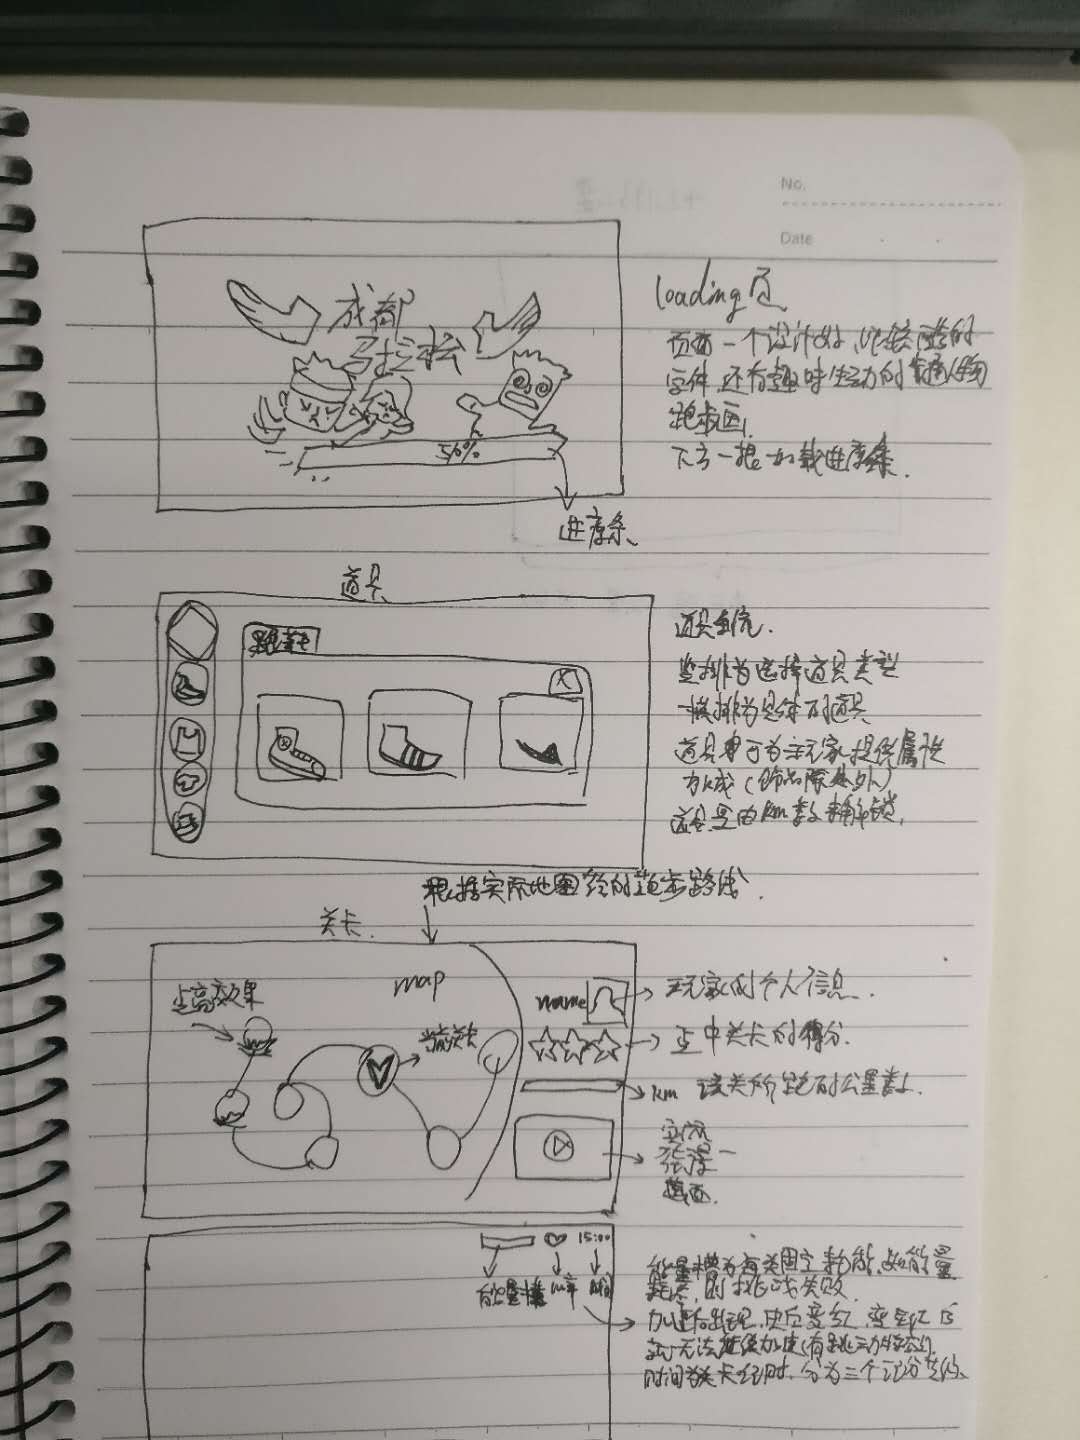 No.
Date
成都
马拉松
56%
进度条
loading页
页面一个设计好、比较酷的
字体,还有趣味生动的卡通人物
跑步画,
下方一根加载进度条.
道具
跑鞋
X
道具系统.
竖排为选择道具类型
横排为具体的道具
道具可为玩家提供属性
加成(饰品除外)
道具是由km数来解锁,
根据实际地图绘的跑步路线.
关卡.
map
点亮效果
当前关卡
name
玩家的个人信息.
选中关卡的得分.
km 该关所跑的公里数.
实际
画面.
15:00
能量槽 心率 时间
能量槽为每关固定耗能,如能量
耗尽,则挑战失败.
加速后出现,满后变红,变红后
无法继续加速(有跳动特效)
时间为关卡计时,分为三个记分节点